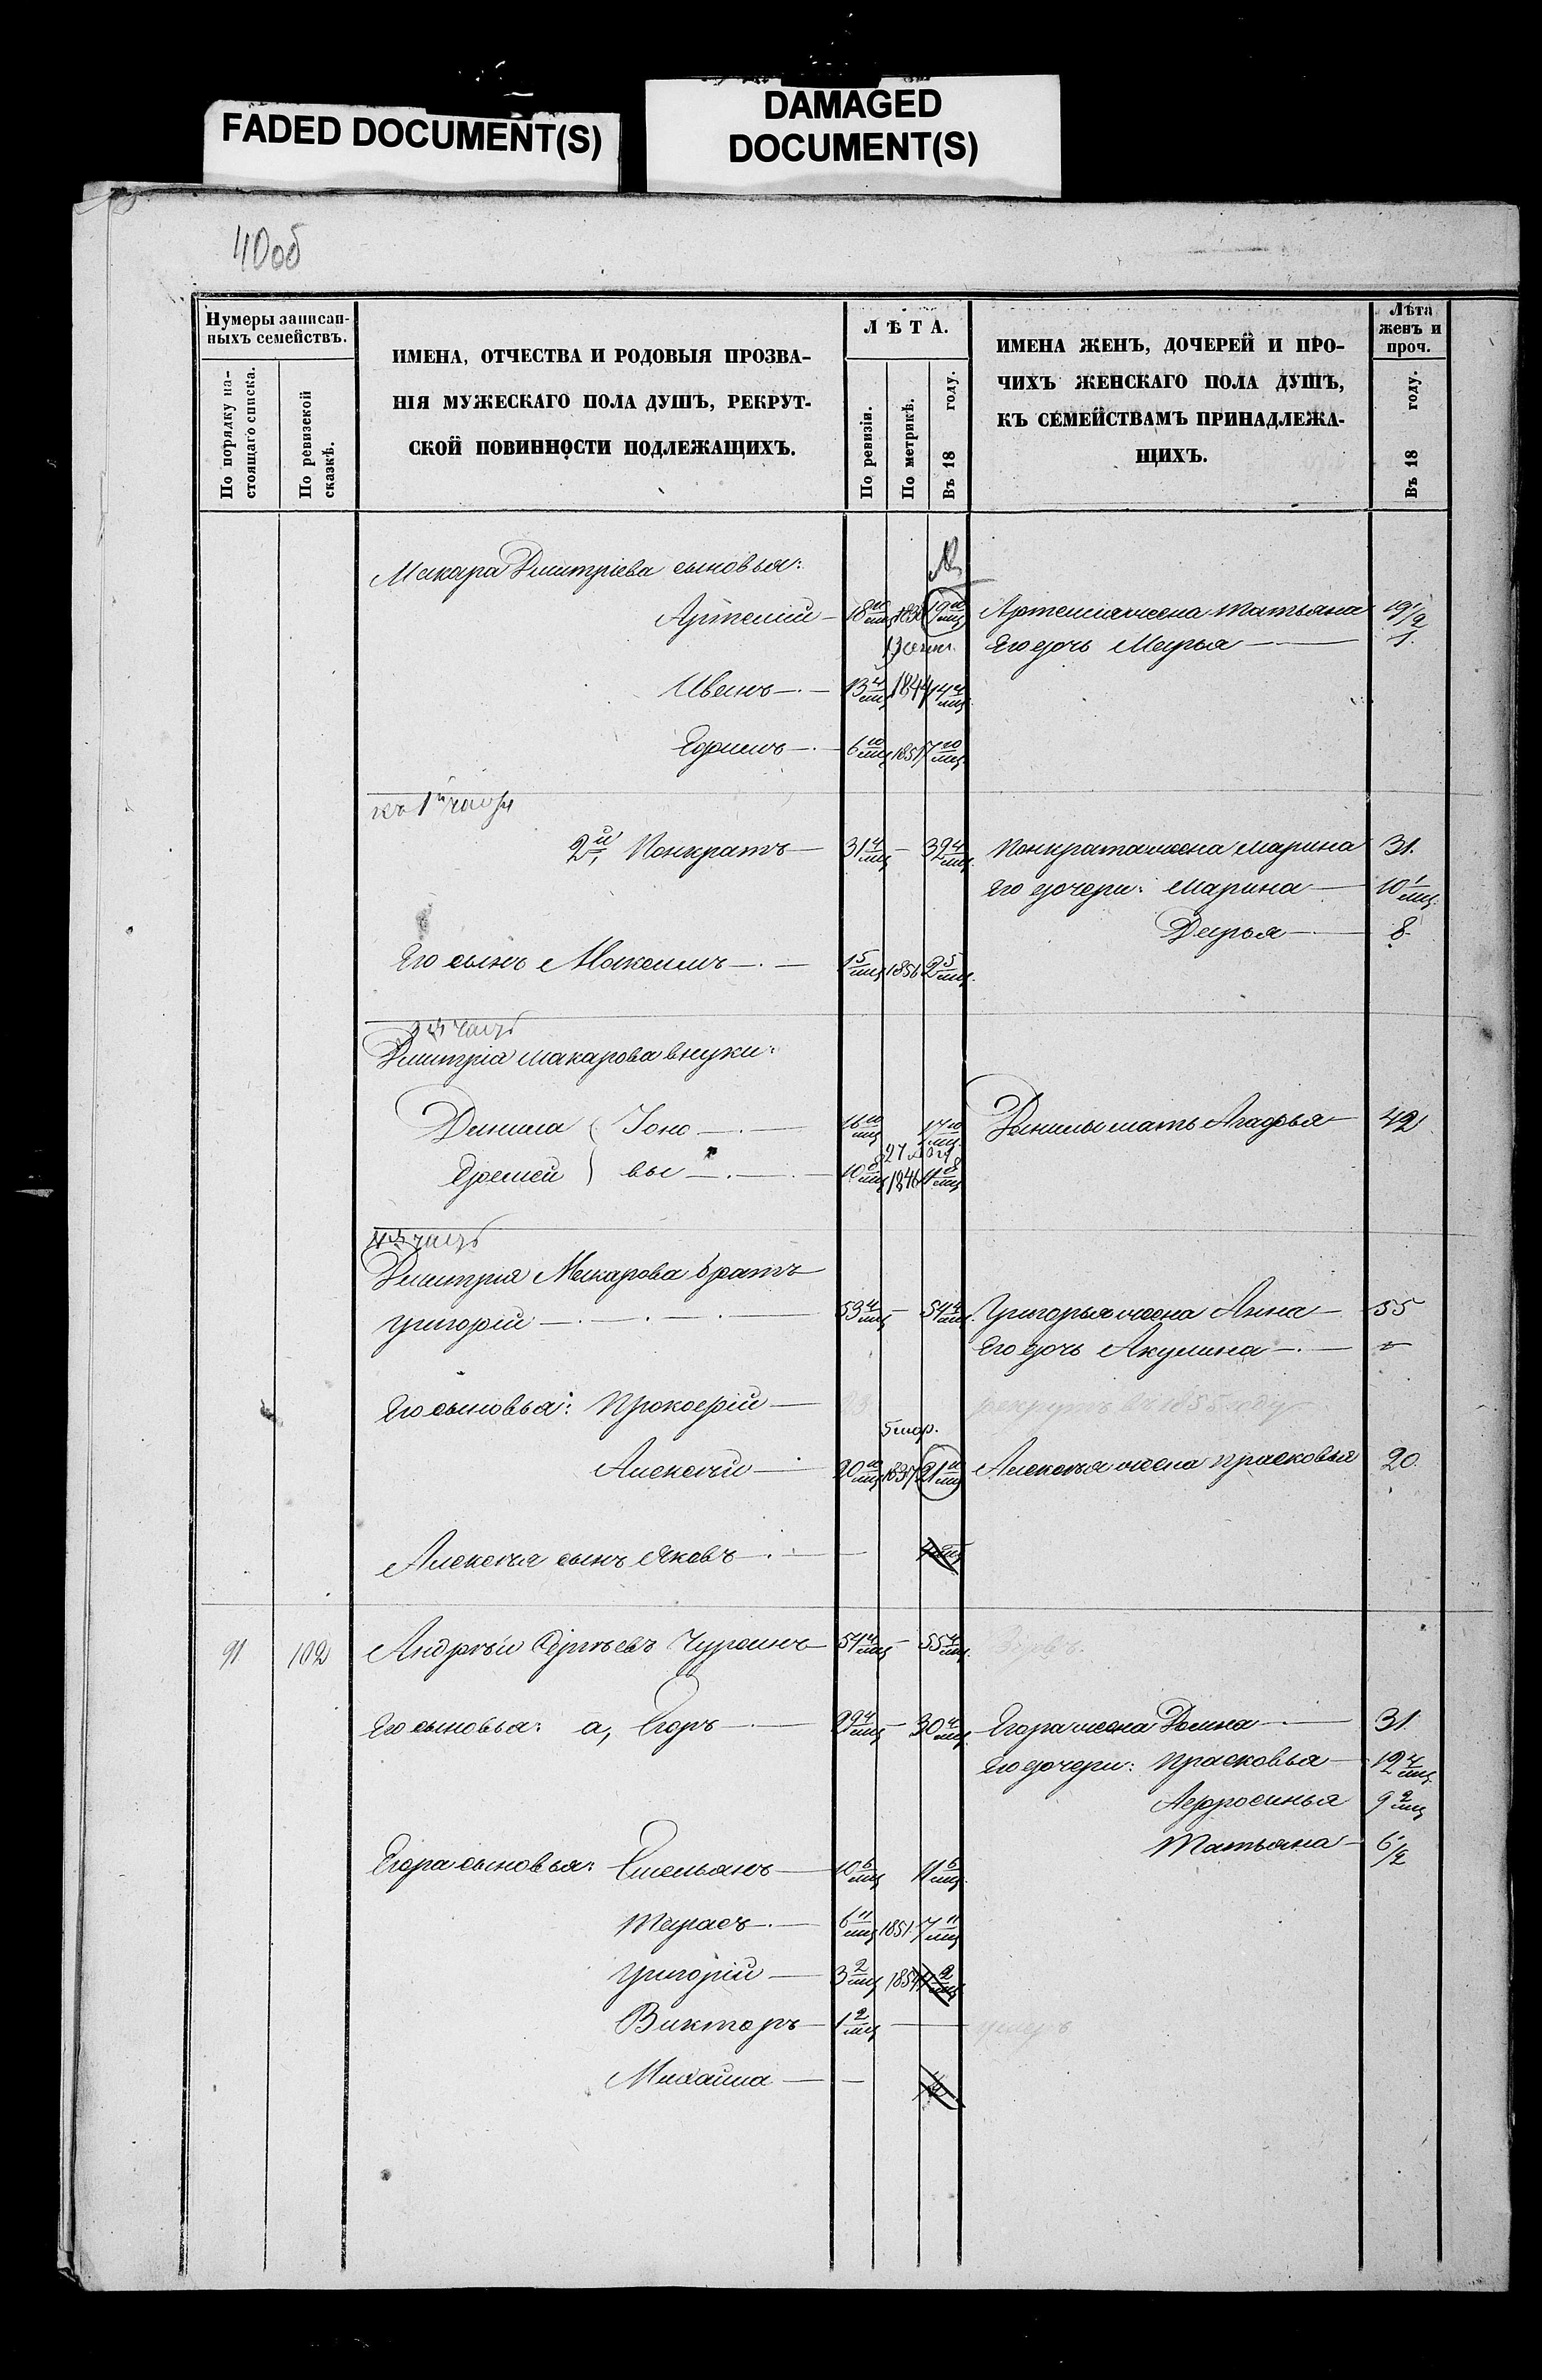 FADED DOCUMENT(S)
DAMAGED
DOCUMENT(S)
40об
Нумеры записан-
ныхъ семействъ.
По порядку на-
стоящаго списка.
По ревизской
сказкѣ.
ИМЕНА, ОТЧЕСТВА И РОДОВЫЯ ПРОЗВА-
НІЯ МУЖЕСКАГО ПОЛА ДУШЪ, РЕКРУТ-
СКОЙ ПОВИННОСТИ ПОДЛЕЖАЩИХЪ.
ЛѢТА.
По ревизіи.
По метрикѣ.
Въ 18 году.
ИМЕНА ЖЕНЪ, ДОЧЕРЕЙ И ПРО-
ЧИХЪ ЖЕНСКАГО ПОЛА ДУШЪ,
КЪ СЕМЕЙСТВАМЪ ПРИНАДЛЕЖА-
ЩИХЪ.
Лѣта
женъ и
проч.
Въ 18 году.
Макара Дмитріева сыновья:
Артемій 18 10/мц 19 10/мц Артемія жена Татьяна 19 1/2
Его дочь Марья 1.
Иванъ 13 4/мц 1844 14 4/мц
Ефимъ 6 10/мц 1851 7 10/мц
къ 1й части
2й, Понкратъ 31 4/мц 32 4/мц Понкрата жена Марина 31.
Его дочери: Марина 10 1/мц.
Дарья 8.
Его сынъ Максимъ 1 5/мц 1856 2 5/мц.
Дмитрія Макарова внуки:
Данила Іоно 16 10/мц 17 10/мц. Данилы мать Агафья 42
вы 10 8/мц 1846 11 8/мц
Дмитрія Макарова братъ
Григорій 53 4/мц 54 4/мц. Григорья жена Анна 55
Его дочь Акулина
Его сыновья: Прокофій рекрутъ въ 1855 году
5 мар.
Алексѣй 20 10/мц 1837 21 10/мц Алексѣя жена Прасковья 20.
Алексѣя сынъ Яковъ
91 102 Андрѣй Сергѣевъ 54 4/мц 55 4/мц.
Его сыновья: а, Егоръ 29 4/мц 30 4/мц. Егора жена Домна 31.
Его дочери: Прасковья 12 4/мц.
Афросинья 9 2/мц
Татьяна 6 1/2
Егора сыновья: Емельянъ 10 6/мц 11 6/мц.
Тарасъ 6 11/мц 1851 7 11/мц
Григорій 3 2/мц 1854 4 2/мц
Викторъ 1 2/мц умеръ
Михаила